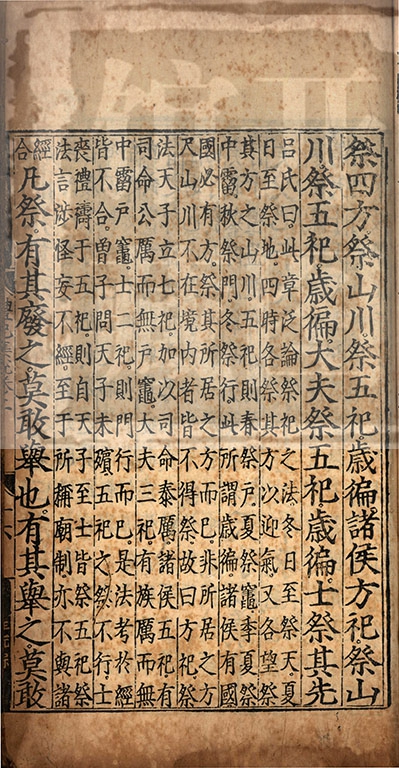 祭四方祭山川祭五祀歲徧諸侯方祀祭山
川祭五祀歲徧大夫祭五祀歲徧士祭其先
呂氏曰此章泛論祭祀之法冬日至祭天夏
日至祭地四時各祭其方以迎氣又各望祭
其方之山川五祀則春祭戶夏祭竈季夏祭
中霤秋祭門冬祭行此所謂歲徧諸侯有國
國必有方祭其所居之方而已非所居之方
及山川不在境內者皆不得祭故曰方祀祭
法天子立七祀加以司命泰厲諸侯五祀有
司命公厲而無戶竈大夫三祀有族厲而無
中霤戶竈士二祀則門行而已是法考於經
皆不合曾子問天子未殯五祀之祭不行士
喪禮禱于五祀則自天子至士皆祭五祀祭
法言涉怪妄不經至于所稱廟制亦不與諸
經合
凡祭有其廢之莫敢舉也有其舉之莫敢